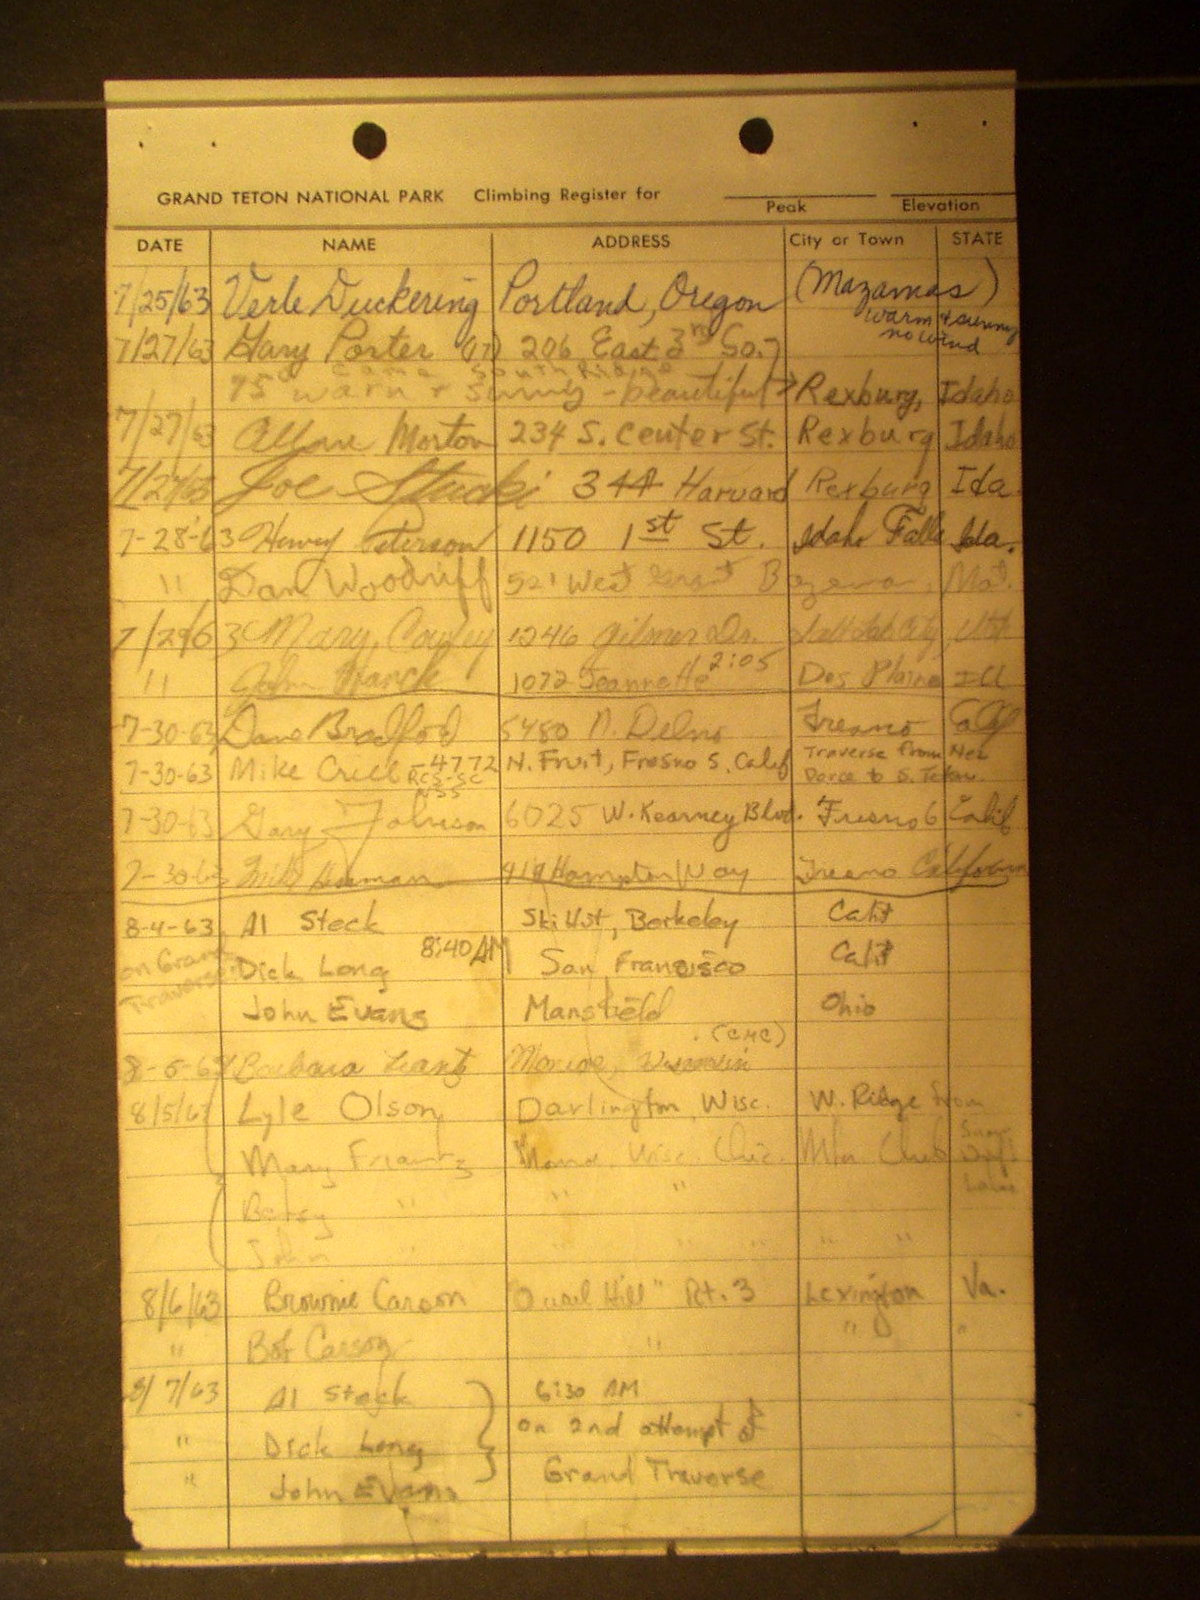 GRAND TETON NATIONAL PARK Climbing Register for Peak Elevation
DATE NAME ADDRESS City or Town STATE
7/25/63 Verle Duckering Portland, Oregon (Mazamas)
warm & sunny
no wind
7/27/63 Gary Porter (17) 206 East 3rd So.
Came South Ridge
75° warm & sunny - beautiful Rexburg, Idaho
7/27/63 Allan Morton 234 S. Center St. Rexburg Idaho
7/27/63 Joe Stucki 344 Harvard Rexburg Ida.
7-28-63 Peterson 1150 1st St. Idaho Falls Ida.
" Dan Woodriff 521 West Grant Bozeman, Mot.
7/29/63 Mary, Cowley 1246 Gilmer Dr. Salt Lake City, Ut
" John Franck 1072 Jeannette 2:05 Des Plaine Ill
7-30-63 Dave Bradford 5480 N. Delno Fresno Calif
7-30-63 Mike Criel -4772 N. Fruit, Fresno 5, Calif Traverse from Nez
RCS-SC
NSS
Perce to S. Teton.
7-30-63 Gary Johnson 6025 W. Kearney Blvd. Fresno 6 Calif
7-30-63 Hampton Way Fresno California
8-4-63 Al Steck Ski Hut, Berkeley Calif
on Grand
Traverse
8:40 AM
Dick Long San Francisco Calif
John Evans Mansfield Ohio
8-5-63 Barbara Monroe, Wisconsin (CMC)
8/5/63 Lyle Olson Darlington, Wisc. W. Ridge from
Mary Frantz Wisc. Chic. Mtn Club
Betsy " " "
John " " " " " "
8/6/63 Brownie Carson Hill" Rt. 3 Lexington Va.
" Bob Carson " " "
8/7/63 Al Steck 6:30 AM
" Dick Long on 2nd attempt of
" John Evans Grand Traverse